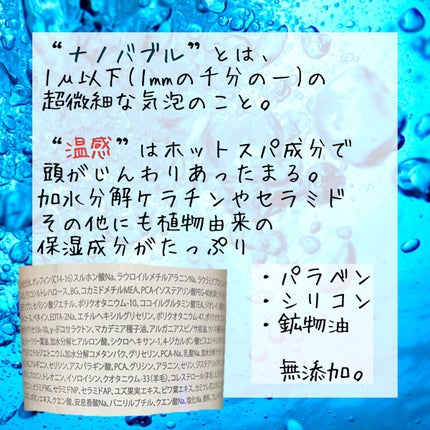 “ナノバブル”とは、
1μ以下(1mmの千分の一)の
超微細な気泡のこと。
“温感”はホットスパ成分で
頭がじんわりあったまる。
加水分解ケラチンやセラミド
その他にも植物由来の
保湿成分がたっぷり
・パラベン
・シリコン
・鉱物油
無添加。
オレフィン(C14-16)スルホン酸Na、ラウロイルメチルアラニンNa、
BG、コカミドメチルMEA、PCAイソステアリン酸PEG-
セバシン酸ジエチル、ポリクオタニウム-10、ココイルグルタミン酸TEA、
EDTA-2Na、エチルヘキシルグリセリン、ポリクオタニウム-
γ-ドコサラクトン、マカデミア種子油、アルガニアスピノサ核油、
加水分解ヒアルロン酸、シクロヘキサン-1,4-ジカルボン酸
加水分解コメタンパク、グリセリン、PCA-Na、乳酸Na、
セリン、アスパラギン酸、PCA、グリシン、アラニン、
トレオニン、イソロイシン、クオタニウム-33(羊毛)、コレステロール
セラミドNG、セラミドNP、セラミドAP、ユズ果実エキス、ビワ葉エキス、
クエン酸、安息香酸Na、バニリルブチル、クエン酸Na、塩化Na、香料